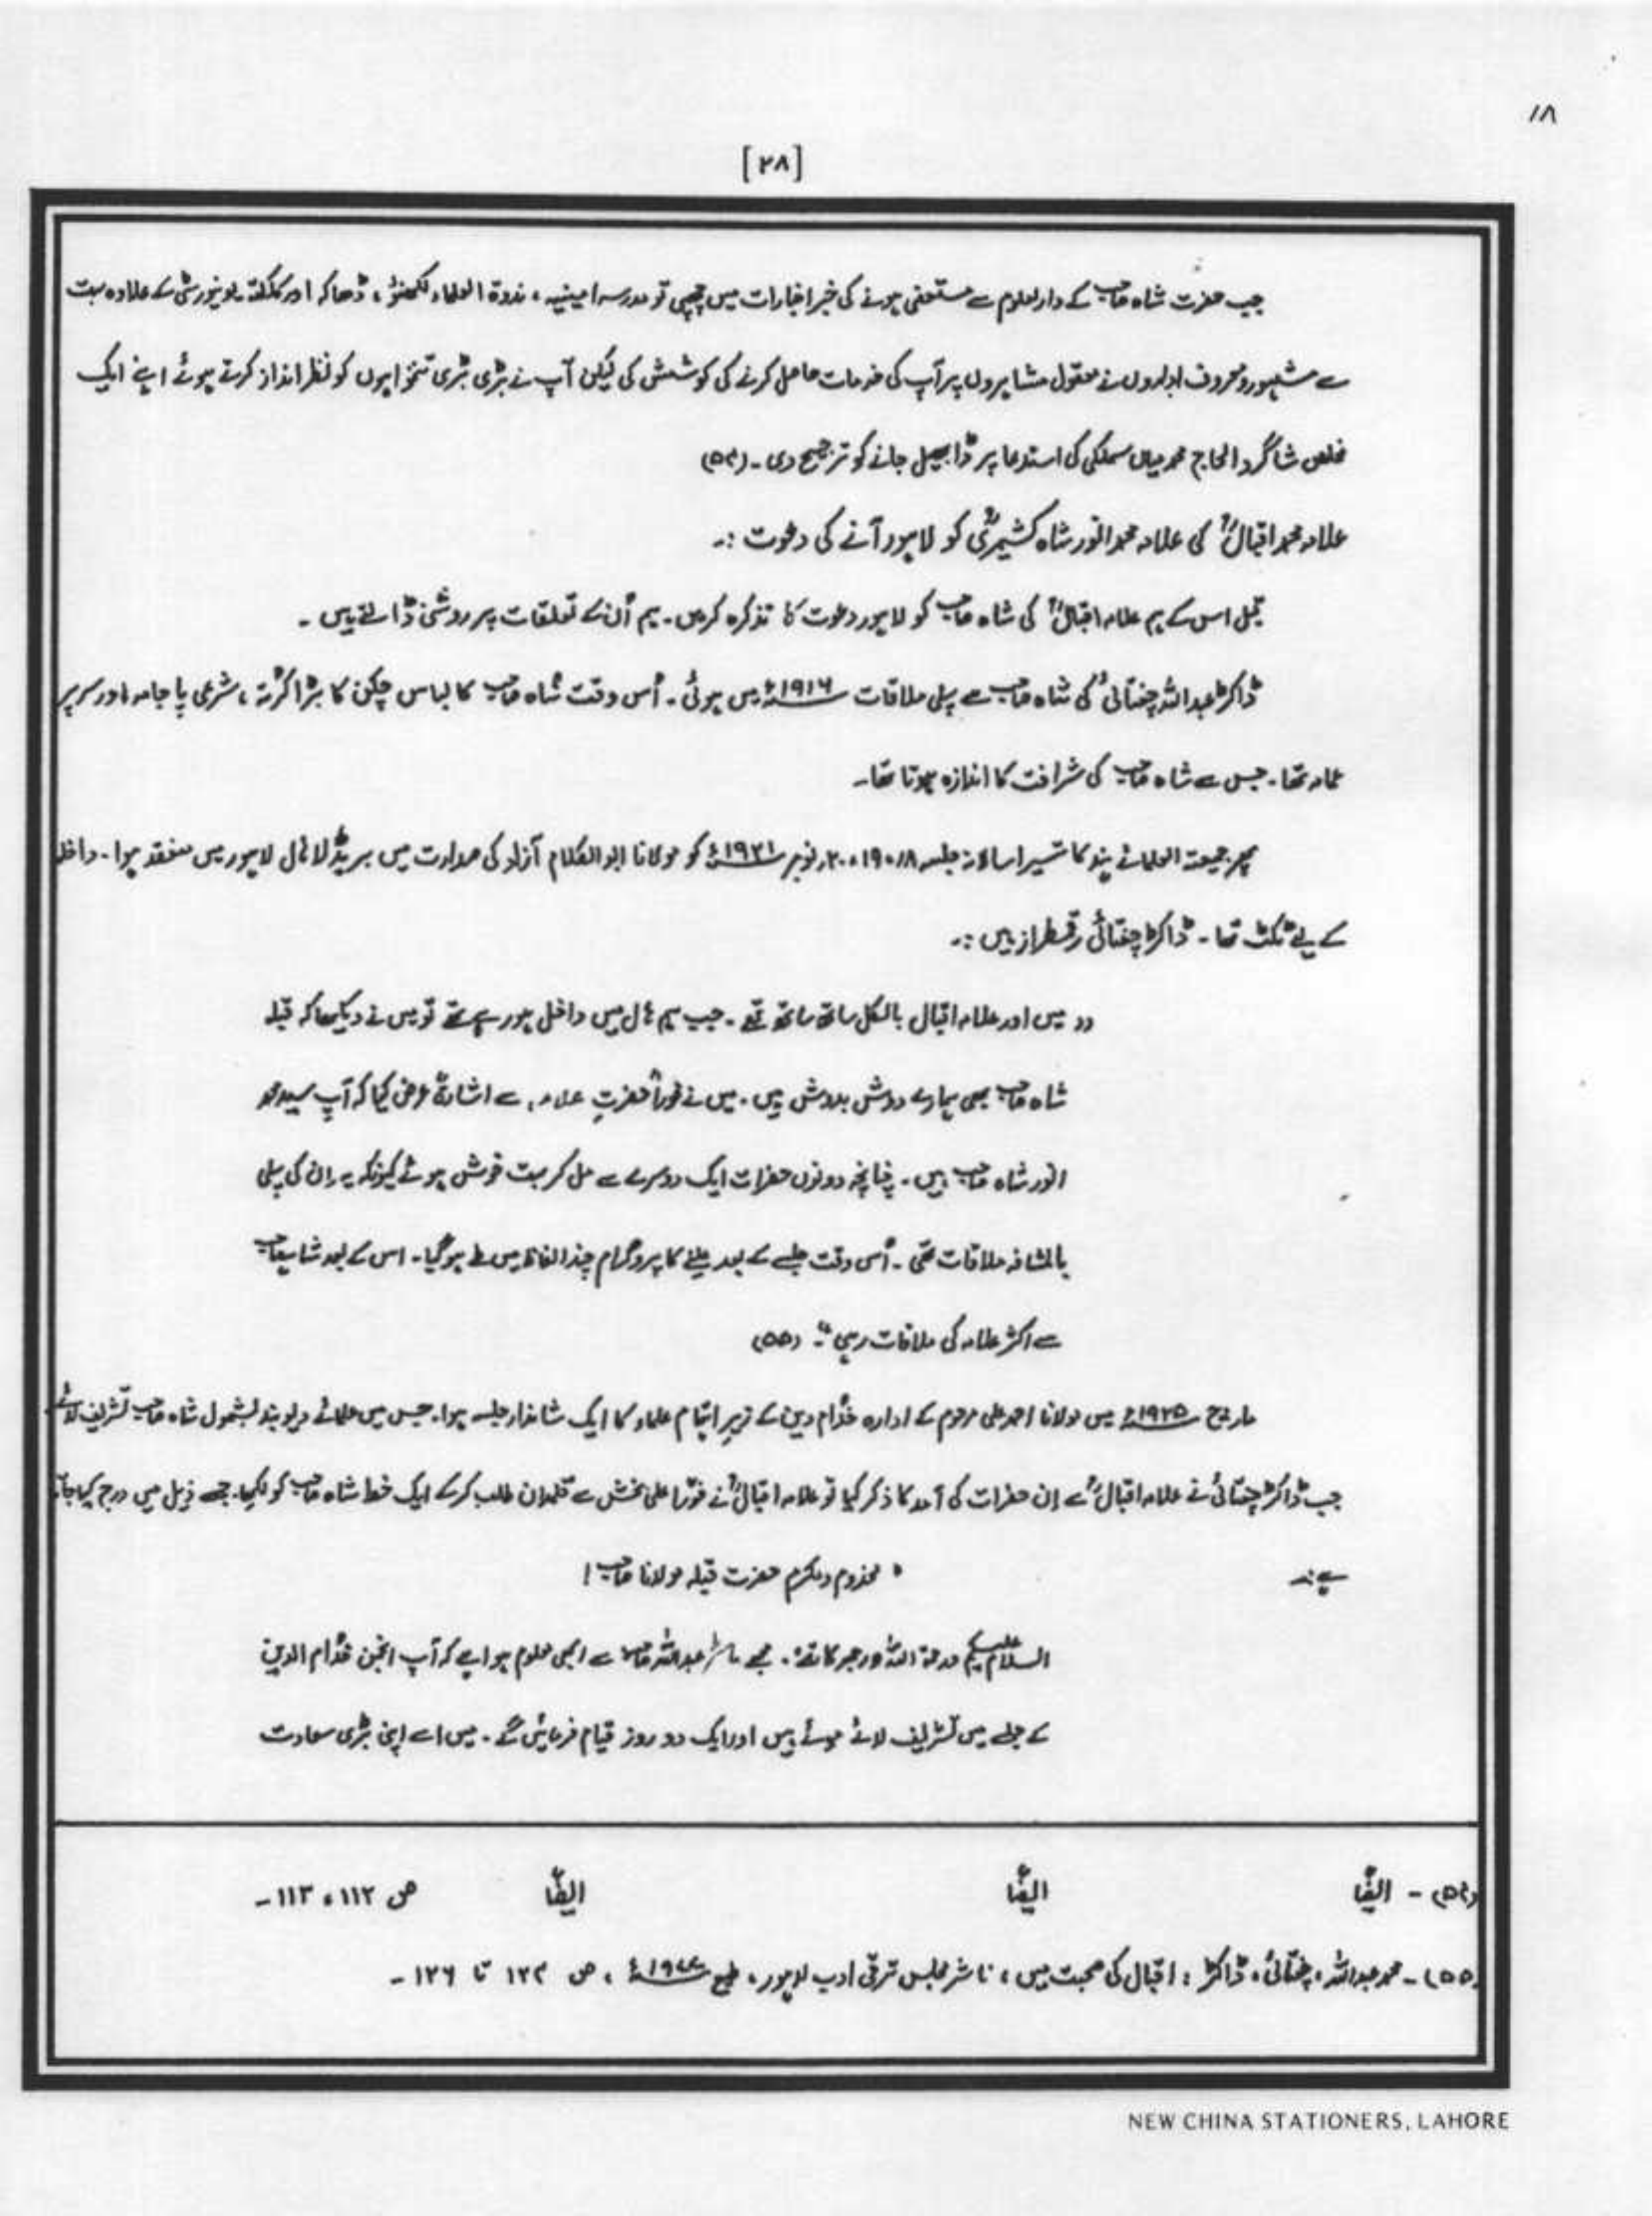 ۱۸
[۲۸]
جب حضرت شاہ صاحب کے دارالعلوم سے مستعفی ہونے کی خبر اخبارات میں چھپی تو مدرسہ امینیہ، ندوۃ العلماء لکھنؤ، ڈھاکہ اور کلکتہ یونیورسٹی کے علاوہ بہت
سے مشہور و معروف اداروں نے معقول مشاہروں پر آپ کی خدمات حاصل کرنے کی کوشش کی لیکن آپ نے بڑی بڑی تنخواہوں کو نظر انداز کرتے ہوئے اپنے ایک
مخلص شاگرد الحاج محمد میاں سملکی کی استدعا پر ڈابھیل جانے کو ترجیح دی ۔ (۵۴)
علامہ محمد اقبالؒ کی علامہ محمد انور شاہ کشمیریؒ کو لاہور آنے کی دعوت :۔
قبل اس کے ہم علامہ اقبالؒ کی شاہ صاحب کو لاہور دعوت کا تذکرہ کریں ۔ ہم اُن کے تعلقات پر روشنی ڈالتے ہیں ۔
ڈاکٹر عبداللہ چغتائیؒ کی شاہ صاحب سے پہلی ملاقات ۱۹۱۶ء میں ہوئی ۔ اُس وقت شاہ صاحب کا لباس چکن کا بڑا کُرتہ ، شرعی پاجامہ اور سر پر
عمامہ تھا ۔ جس سے شاہ صاحب کی شرافت کا اندازہ ہوتا تھا ۔
پھر جمیعت العلمائے ہند کا تیسرا سالانہ جلسہ ۱۸، ۱۹، ۲۰ نومبر ۱۹۲۱ء کو مولانا ابوالکلام آزاد کی صدارت میں بریڈلا ہال لاہور میں منعقد ہوا ۔ داخلہ
کے لیے ٹکٹ تھا ۔ ڈاکٹر چغتائی رقمطراز ہیں :۔
”میں اور علامہ اقبال بالکل ساتھ ساتھ تھے ۔ جب ہم ہال میں داخل ہو رہے تھے تو میں نے دیکھا کہ قبلہ
شاہ صاحب بھی ہمارے دوش بدوش ہیں ۔ میں نے فوراً حضرتِ علامہ سے اشارۃً عرض کیا کہ آپ سید محمد
انور شاہ صاحب ہیں ۔ چنانچہ دونوں حضرات ایک دوسرے سے مل کر بہت خوش ہوئے کیونکہ یہ اِن کی پہلی
بالمشافہ ملاقات تھی ۔ اُس وقت جلسے کے بعد ملنے کا پروگرام چند الفاظ میں طے ہوگیا ۔ اس کے بعد شاہ صاحب
سے اکثر علامہ کی ملاقات رہی“ ۔ (۵۵)
مارچ ۱۹۲۵ء میں مولانا احمد علی مرحوم کے ادارہ خدّام دین کے زیرِ اہتمام علماء کا ایک شاندار جلسہ ہوا ۔ جس میں علمائے دیوبند بشمول شاہ صاحب تشریف لائے
جب ڈاکٹر چغتائی نے علامہ اقبالؒ سے اِن حضرات کی آمد کا ذکر کیا تو علامہ اقبالؒ نے فوراً علی بخش سے قلمدان طلب کر کے ایک خط شاہ صاحب کو لکھا ۔ جسے ذیل میں درج کیا جاتا
ہے :۔ ”مخدوم و مکرم حضرت قبلہ مولانا صاحب !
السلام علیکم ورحمۃ اللہ وبرکاتہ ۔ مجھے ماسٹر عبداللہ صاحب سے ابھی معلوم ہوا ہے کہ آپ انجمن خدّام الدین
کے جلسے میں تشریف لائے ہوئے ہیں اور ایک دو روز قیام فرمائیں گے ۔ میں اسے اپنی بڑی سعادت
(۵۴) ۔ ایضاً ایضاً ایضاً ص ۱۱۲، ۱۱۳ ۔
(۵۵) ۔ محمد عبداللہ ، چغتائی ، ڈاکٹر : اقبال کی صحبت میں ، ناشر مجلس ترقی ادب لاہور ، طبع ۱۹۷۷ء ، ص ۱۲۴ تا ۱۲۶ ۔
NEW CHINA STATIONERS, LAHORE